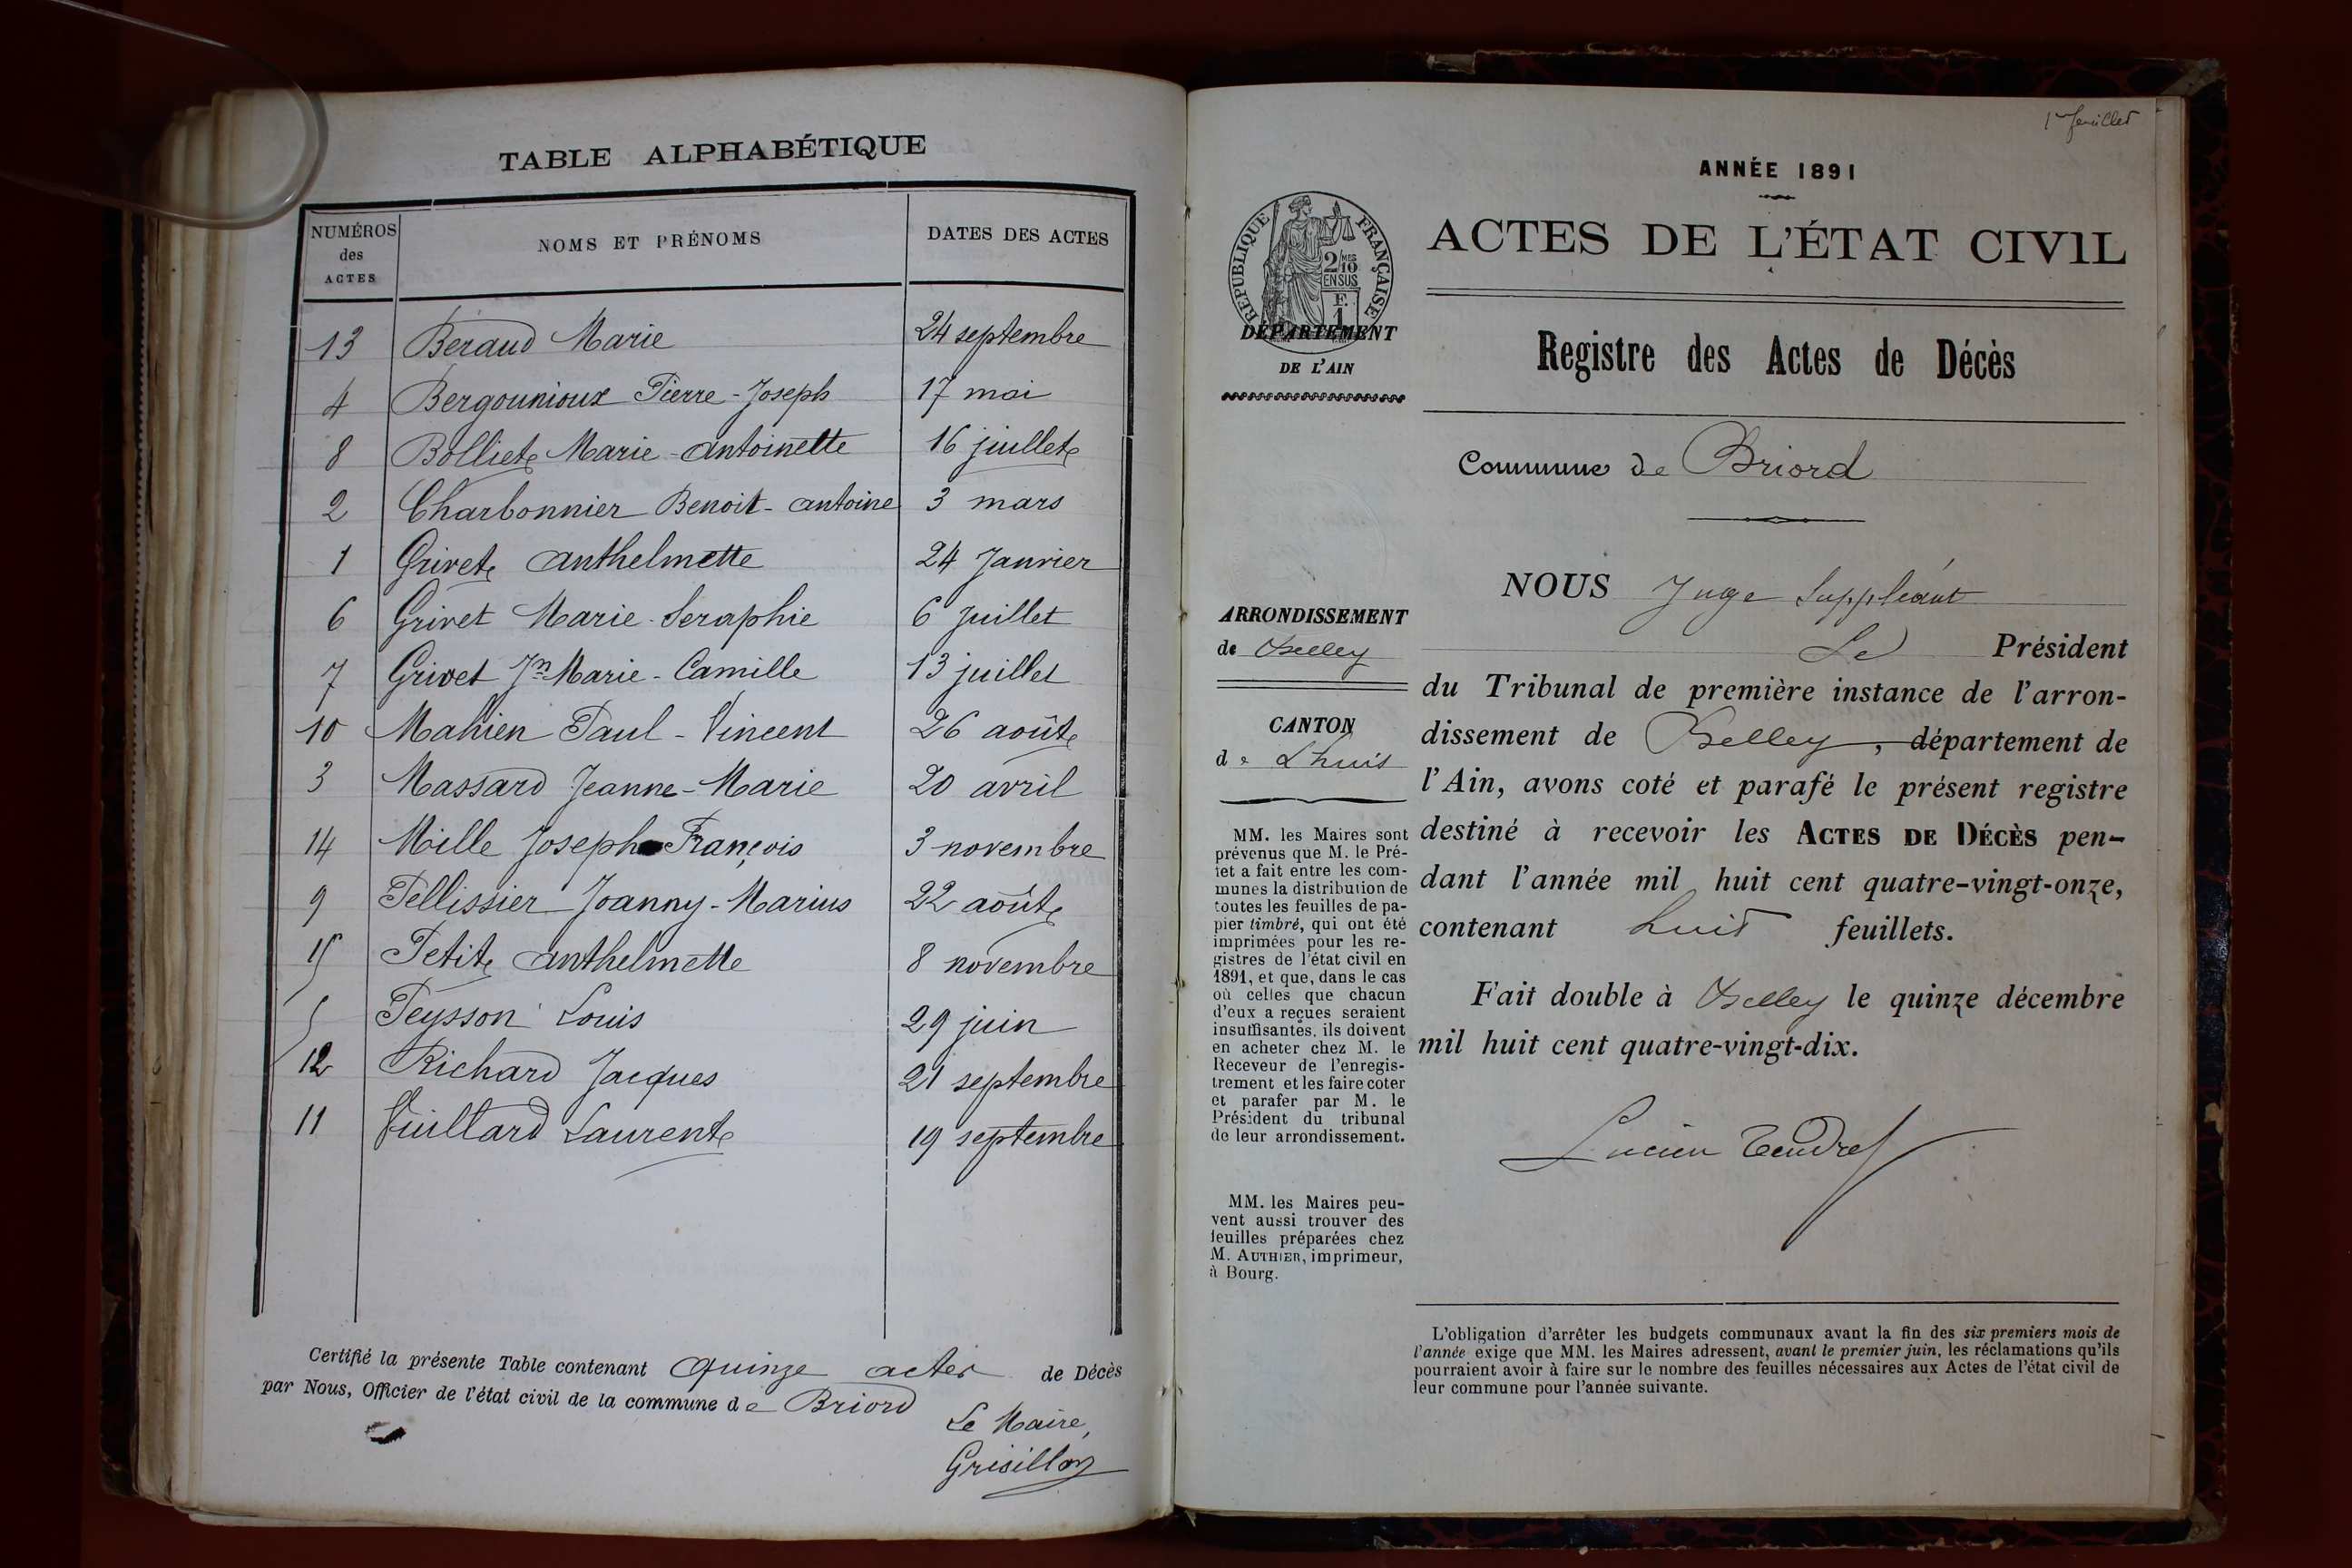 TABLE ALPHABÉTIQUE
NUMÉROS des ACTES NOMS ET PRÉNOMS DATES DES ACTES
13 Beraud Marie 24 septembre
4 Bergounioux Pierre-Joseph 17 mai
8 Bolliet Marie-antoinette 16 juillet
2 Charbonnier Benoit-antoine 3 mars
1 Grivet anthelmette 24 Janvier
6 Grivet Marie-Seraphie 6 Juillet
7 Grivet Jn Marie-Camille 13 juillet
10 Mahien Paul-Vincent 26 août
3 Massard Jeanne-Marie 20 avril
14 Mille Joseph François 3 novembre
9 Pellissier Joanny-Marius 22 août
15 Petit anthelmette 8 novembre
5 Peysson Louis 29 juin
12 Richard Jacques 21 septembre
11 Vuillard Laurent 19 septembre
Certifié la présente Table contenant quinze actes de Décès
par Nous, Officier de l'état civil de la commune de Briord
Le Maire,
Grisillon
1er feuillet
ANNÉE 1891
ACTES DE L'ÉTAT CIVIL
Registre des Actes de Décès
Commune de Briord
RÉPUBLIQUE FRANÇAISE
2/10 MES
EN SUS
F.
1
DÉPARTEMENT
DE L'AIN
ARRONDISSEMENT
de Belley
CANTON
de Lhuis
MM. les Maires sont
prévenus que M. le Pré-
fet a fait entre les com-
munes la distribution de
toutes les feuilles de pa-
pier timbré, qui ont été
imprimées pour les re-
gistres de l'état civil en
1891, et que, dans le cas
où celles que chacun
d'eux a reçues seraient
insuffisantes, ils doivent
en acheter chez M. le
Receveur de l'enregis-
trement et les faire coter
et parafer par M. le
Président du tribunal
de leur arrondissement.
MM. les Maires peu-
vent aussi trouver des
feuilles préparées chez
M. AUTHIER, imprimeur,
à Bourg.
NOUS Juge Suppléant
Le Président
du Tribunal de première instance de l'arron-
dissement de Belley, département de
l'Ain, avons coté et parafé le présent registre
destiné à recevoir les ACTES DE DÉCÈS pen-
dant l'année mil huit cent quatre-vingt-onze,
contenant huit feuillets.
Fait double à Belley le quinze décembre
mil huit cent quatre-vingt-dix.
Lucien Tendret
L'obligation d'arrêter les budgets communaux avant la fin des six premiers mois de
l'année exige que MM. les Maires adressent, avant le premier juin, les réclamations qu'ils
pourraient avoir à faire sur le nombre des feuilles nécessaires aux Actes de l'état civil de
leur commune pour l'année suivante.